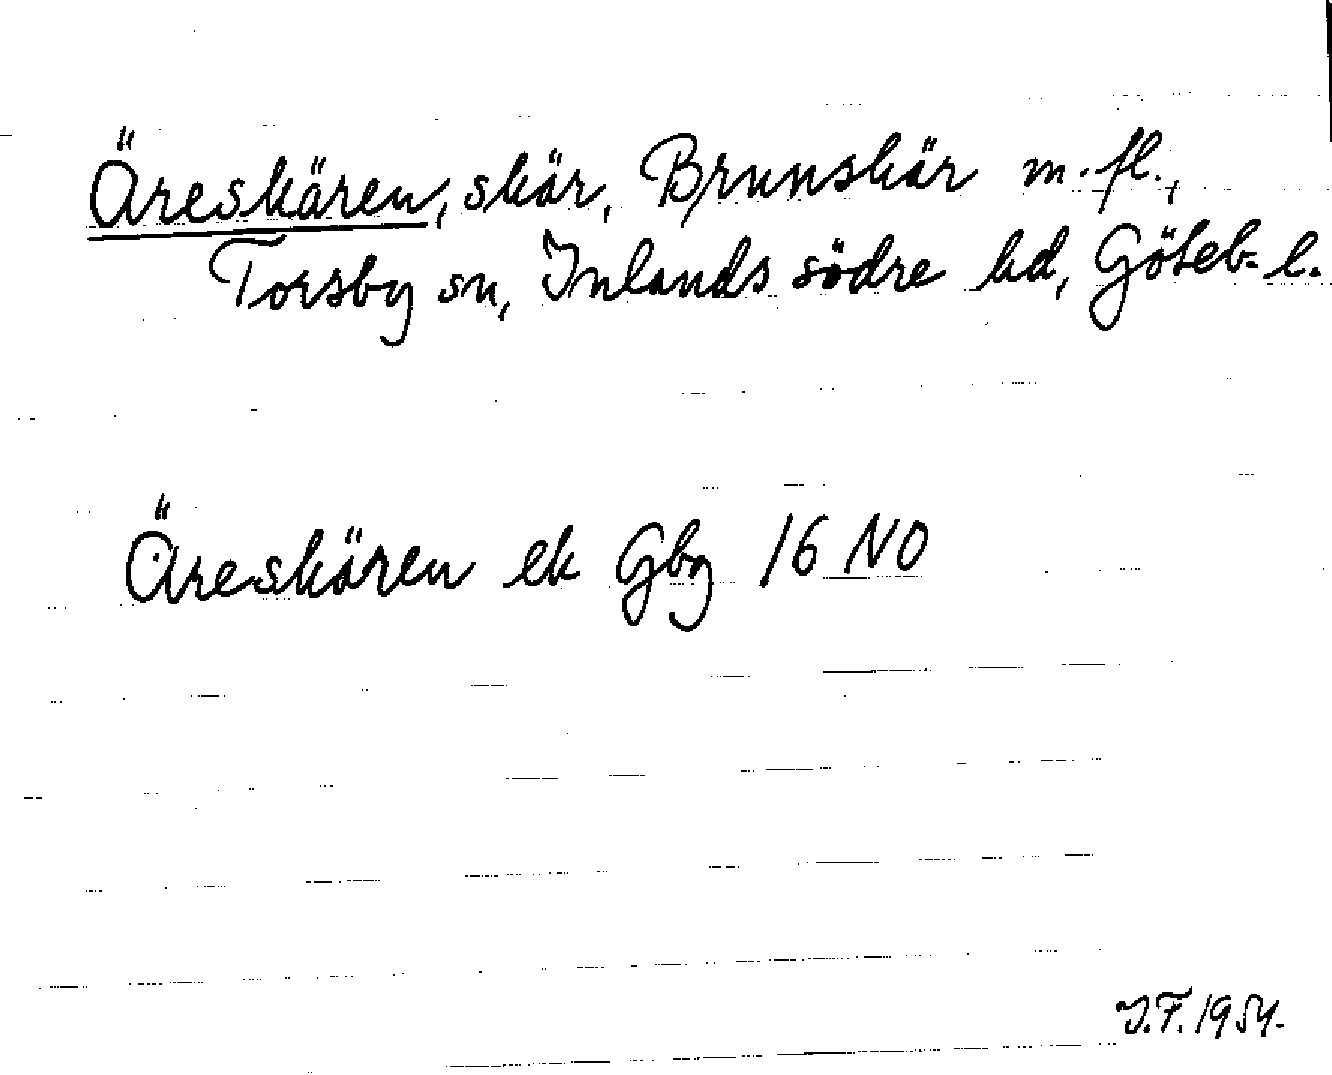 Äreskären, skär, Brunskär m. fl.,
Torsby sn, Inlands södre hd, Göteb. l.
Äreskären ek Gbg 16 NO
J.F. 1954.